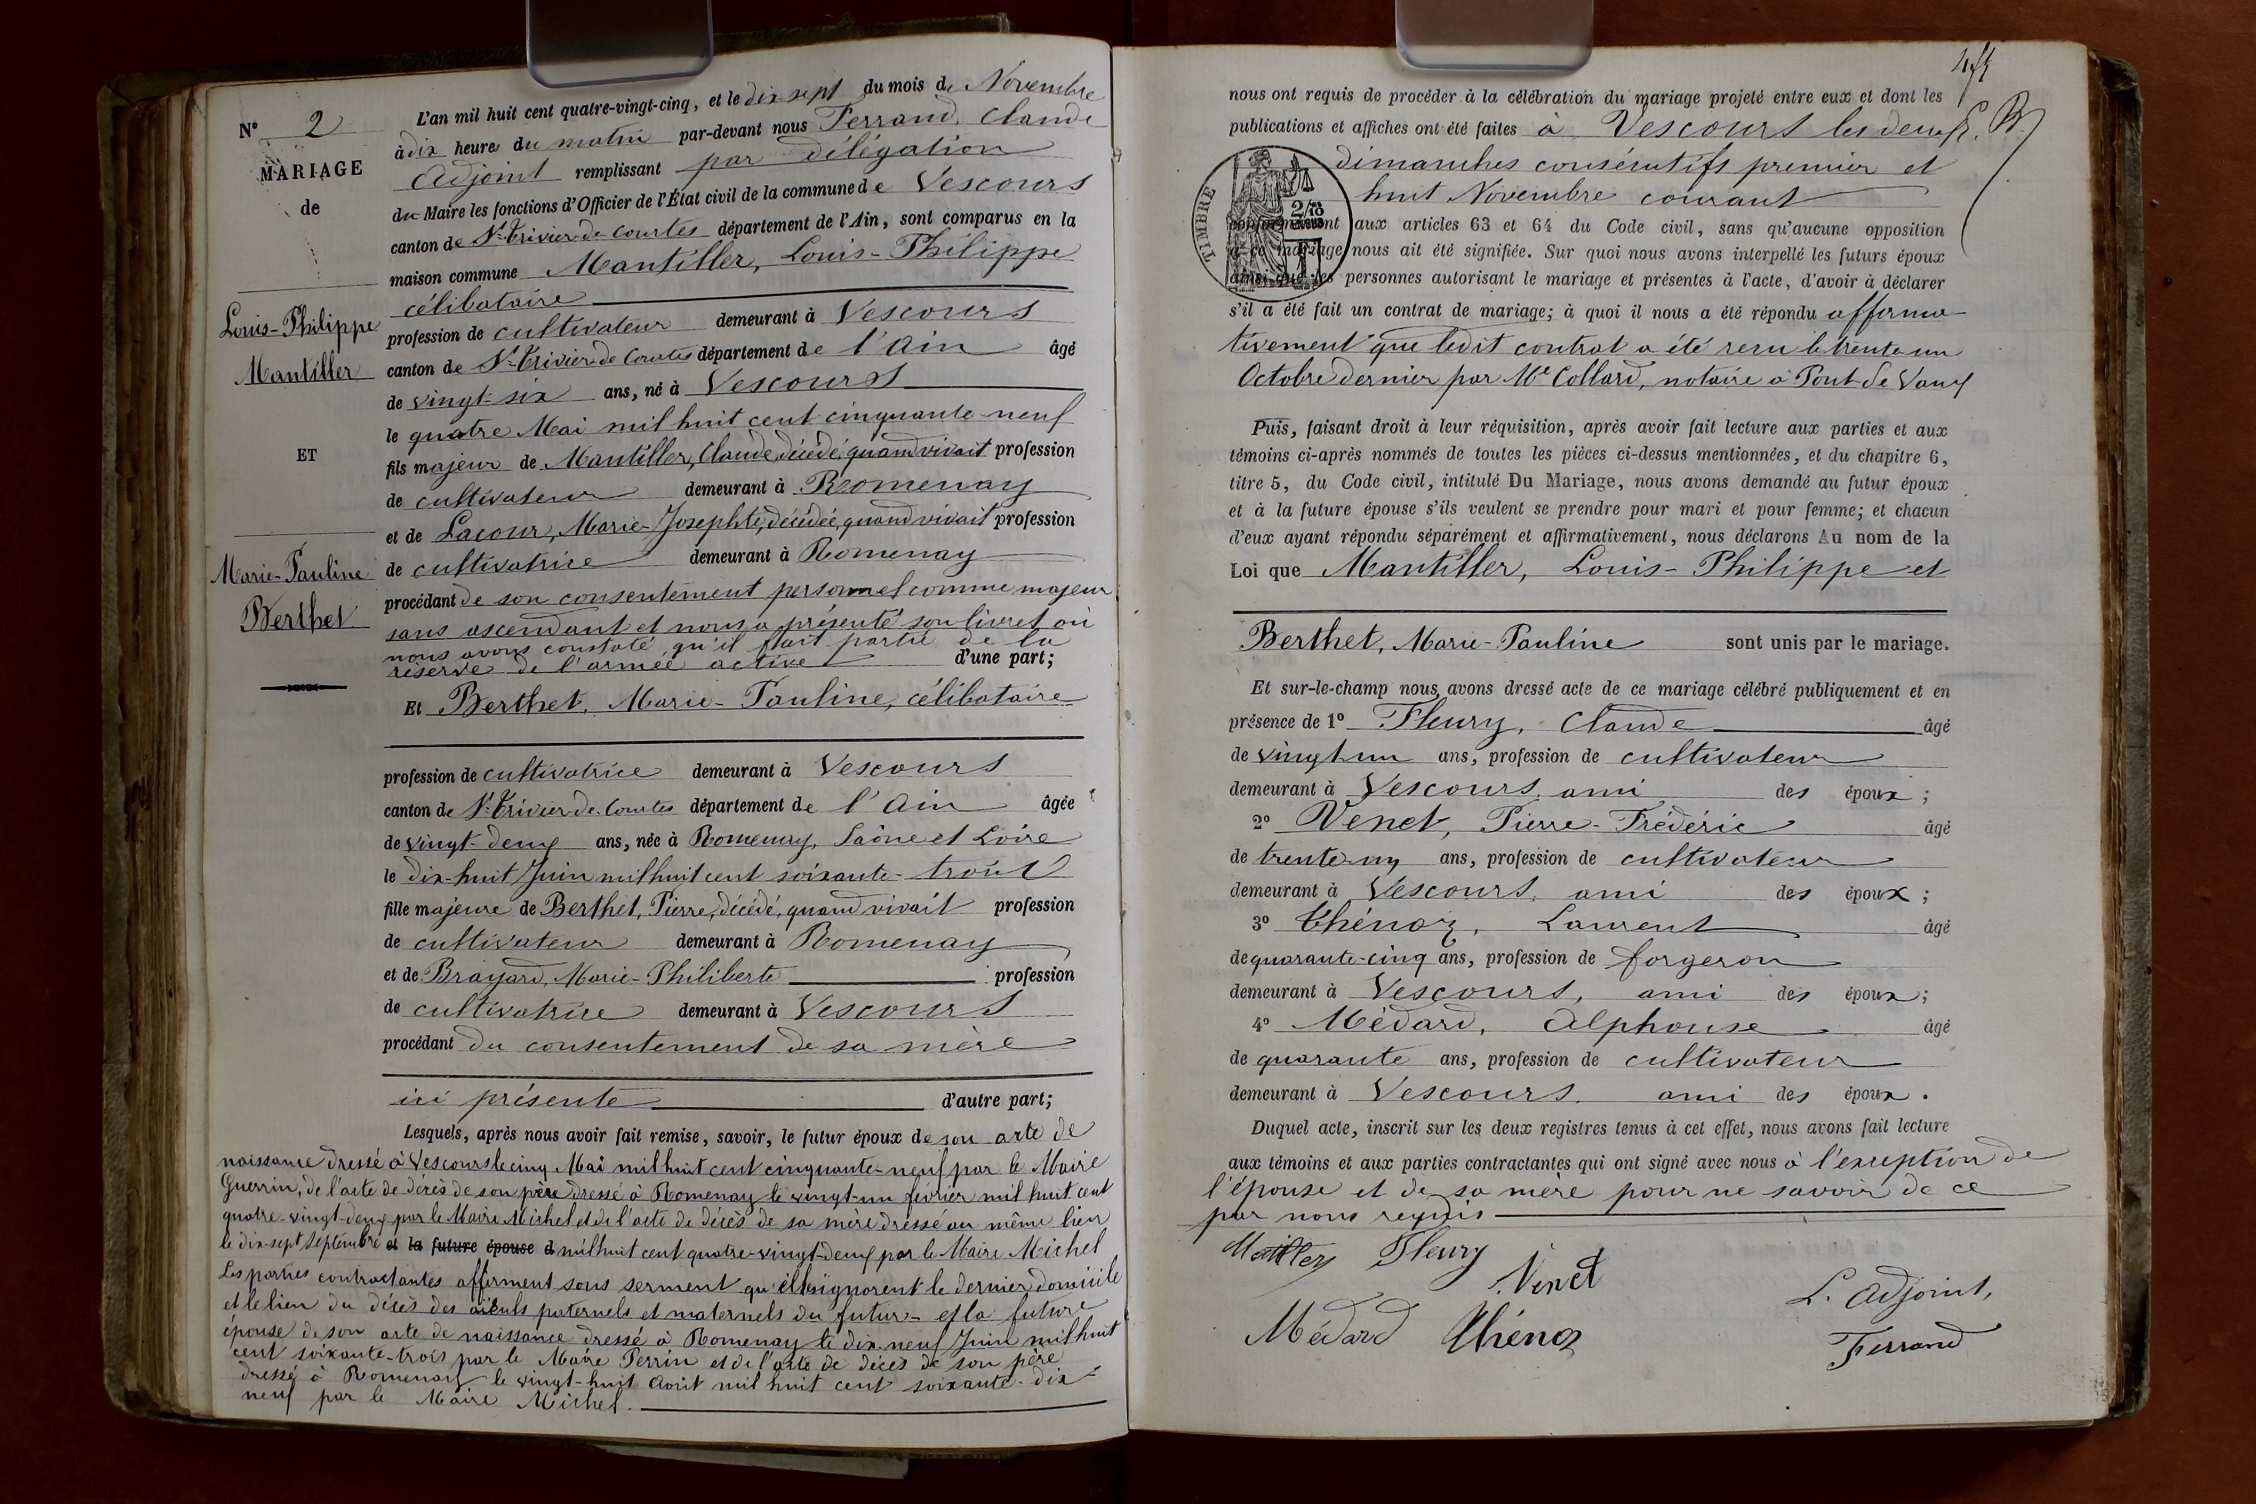 N° 2
MARIAGE
de
Louis-Philippe
Mantiller
ET
Marie-Pauline
Berthet
L'an mil huit cent quatre-vingt-cinq, et le dix sept du mois de Novembre
à dix heures du matin par-devant nous Ferrand, Claude
Adjoint remplissant par délégation
du Maire les fonctions d'Officier de l'État civil de la commune de Vescours
canton de St-Trivier-de-Courtes département de l'Ain, sont comparus en la
maison commune Mantiller, Louis-Philippe
célibataire
profession de cultivateur demeurant à Vescours
canton de St-Trivier-de-Courtes département de l'Ain âgé
de vingt-six ans, né à Vescours
le quatre Mai mil huit cent cinquante-neuf
fils majeur de Mantiller, Claude, décédé, quand vivait profession
de cultivateur demeurant à Romenay
et de Lacour, Marie-Josephte, décédée, quand vivait profession
de cultivatrice demeurant à Romenay
procédant de son consentement personnel comme majeur
sans ascendant et nous a présenté son livret où
nous avons constaté qu'il fait partie de la
réserve de l'armée active d'une part;
Et Berthet, Marie-Pauline, célibataire
profession de cultivatrice demeurant à Vescours
canton de St-Trivier-de-Courtes département de l'Ain âgée
de vingt-deux ans, née à Romenay, Saône et Loire
le dix-huit Juin mil huit cent soixante-trois
fille majeure de Berthet, Pierre, décédé, quand vivait profession
de cultivateur demeurant à Romenay
et de Brayard, Marie-Philiberte profession
de cultivatrice demeurant à Vescours
procédant du consentement de sa mère
ici présente d'autre part;
Lesquels, après nous avoir fait remise, savoir, le futur époux de son acte de
naissance dressé à Vescours le cinq Mai mil huit cent cinquante-neuf par le Maire
Guerrin, de l'acte de décès de son père dressé à Romenay le vingt-un février mil huit cent
quatre-vingt-deux par le Maire Michel et de l'acte de décès de sa mère dressé au même lieu
le dix-sept Septembre et la future épouse d mil huit cent quatre-vingt-deux par le Maire Michel
Les parties contractantes afferment sous serment qu'elles ignorent le dernier domicile
et le lieu du décès des aïeuls paternels et maternels du futur - et la future
épouse de son acte de naissance dressé à Romenay le dix neuf Juin mil huit
cent soixante-trois par le Maire Perrin et de l'acte de décès de son père
dressé à Romenay le vingt-huit Août mil huit cent soixante-dix-
neuf par le Maire Michel.
nous ont requis de procéder à la célébration du mariage projeté entre eux et dont les
publications et affiches ont été faites à Vescours les deux
dimanches consécutifs premier et
huit Novembre courant
TIMBRE
conformément aux articles 63 et 64 du Code civil, sans qu'aucune opposition
à ce mariage nous ait été signifiée. Sur quoi nous avons interpellé les futurs époux
ainsi que les personnes autorisant le mariage et présentes à l'acte, d'avoir à déclarer
s'il a été fait un contrat de mariage; à quoi il nous a été répondu afferma
tivement que ledit contrat a été reçu le trente un
Octobre dernier par Me Collard, notaire à Pont de Vaux
Puis, faisant droit à leur réquisition, après avoir fait lecture aux parties et aux
témoins ci-après nommés de toutes les pièces ci-dessus mentionnées, et du chapitre 6,
titre 5, du Code civil, intitulé Du Mariage, nous avons demandé au futur époux
et à la future épouse s'ils veulent se prendre pour mari et pour femme; et chacun
d'eux ayant répondu séparément et affirmativement, nous déclarons Au nom de la
Loi que Mantiller, Louis-Philippe et
Berthet, Marie-Pauline sont unis par le mariage.
Et sur-le-champ nous avons dressé acte de ce mariage célébré publiquement et en
présence de 1° Fleury, Claude âgé
de vingt-un ans, profession de cultivateur
demeurant à Vescours, ami des époux;
2° Venet, Pierre-Frédéric âgé
de trente-un ans, profession de cultivateur
demeurant à Vescours, ami des époux;
3° Thénoz, Laurent âgé
de quarante-cinq ans, profession de forgeron
demeurant à Vescours, ami des époux;
4° Médard, Alphonse âgé
de quarante ans, profession de cultivateur
demeurant à Vescours. ami des époux.
Duquel acte, inscrit sur les deux registres tenus à cet effet, nous avons fait lecture
aux témoins et aux parties contractantes qui ont signé avec nous à l'exception de
l'épouse et de sa mère pour ne savoir de ce
par nous requis
Mantiller Fleury
Venet
Médard Thénoz
L'Adjoint,
Ferrand